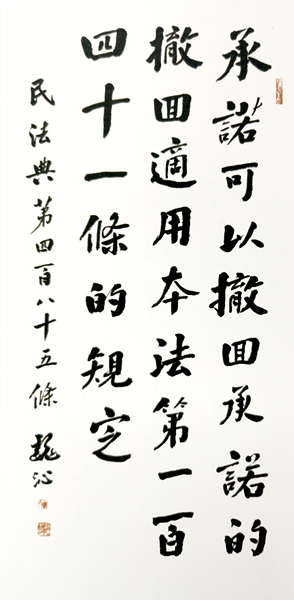 承諾可以撤回承諾的
撤回適用本法第一百
四十一條的規定
民法典第四百八十五條 魏沁